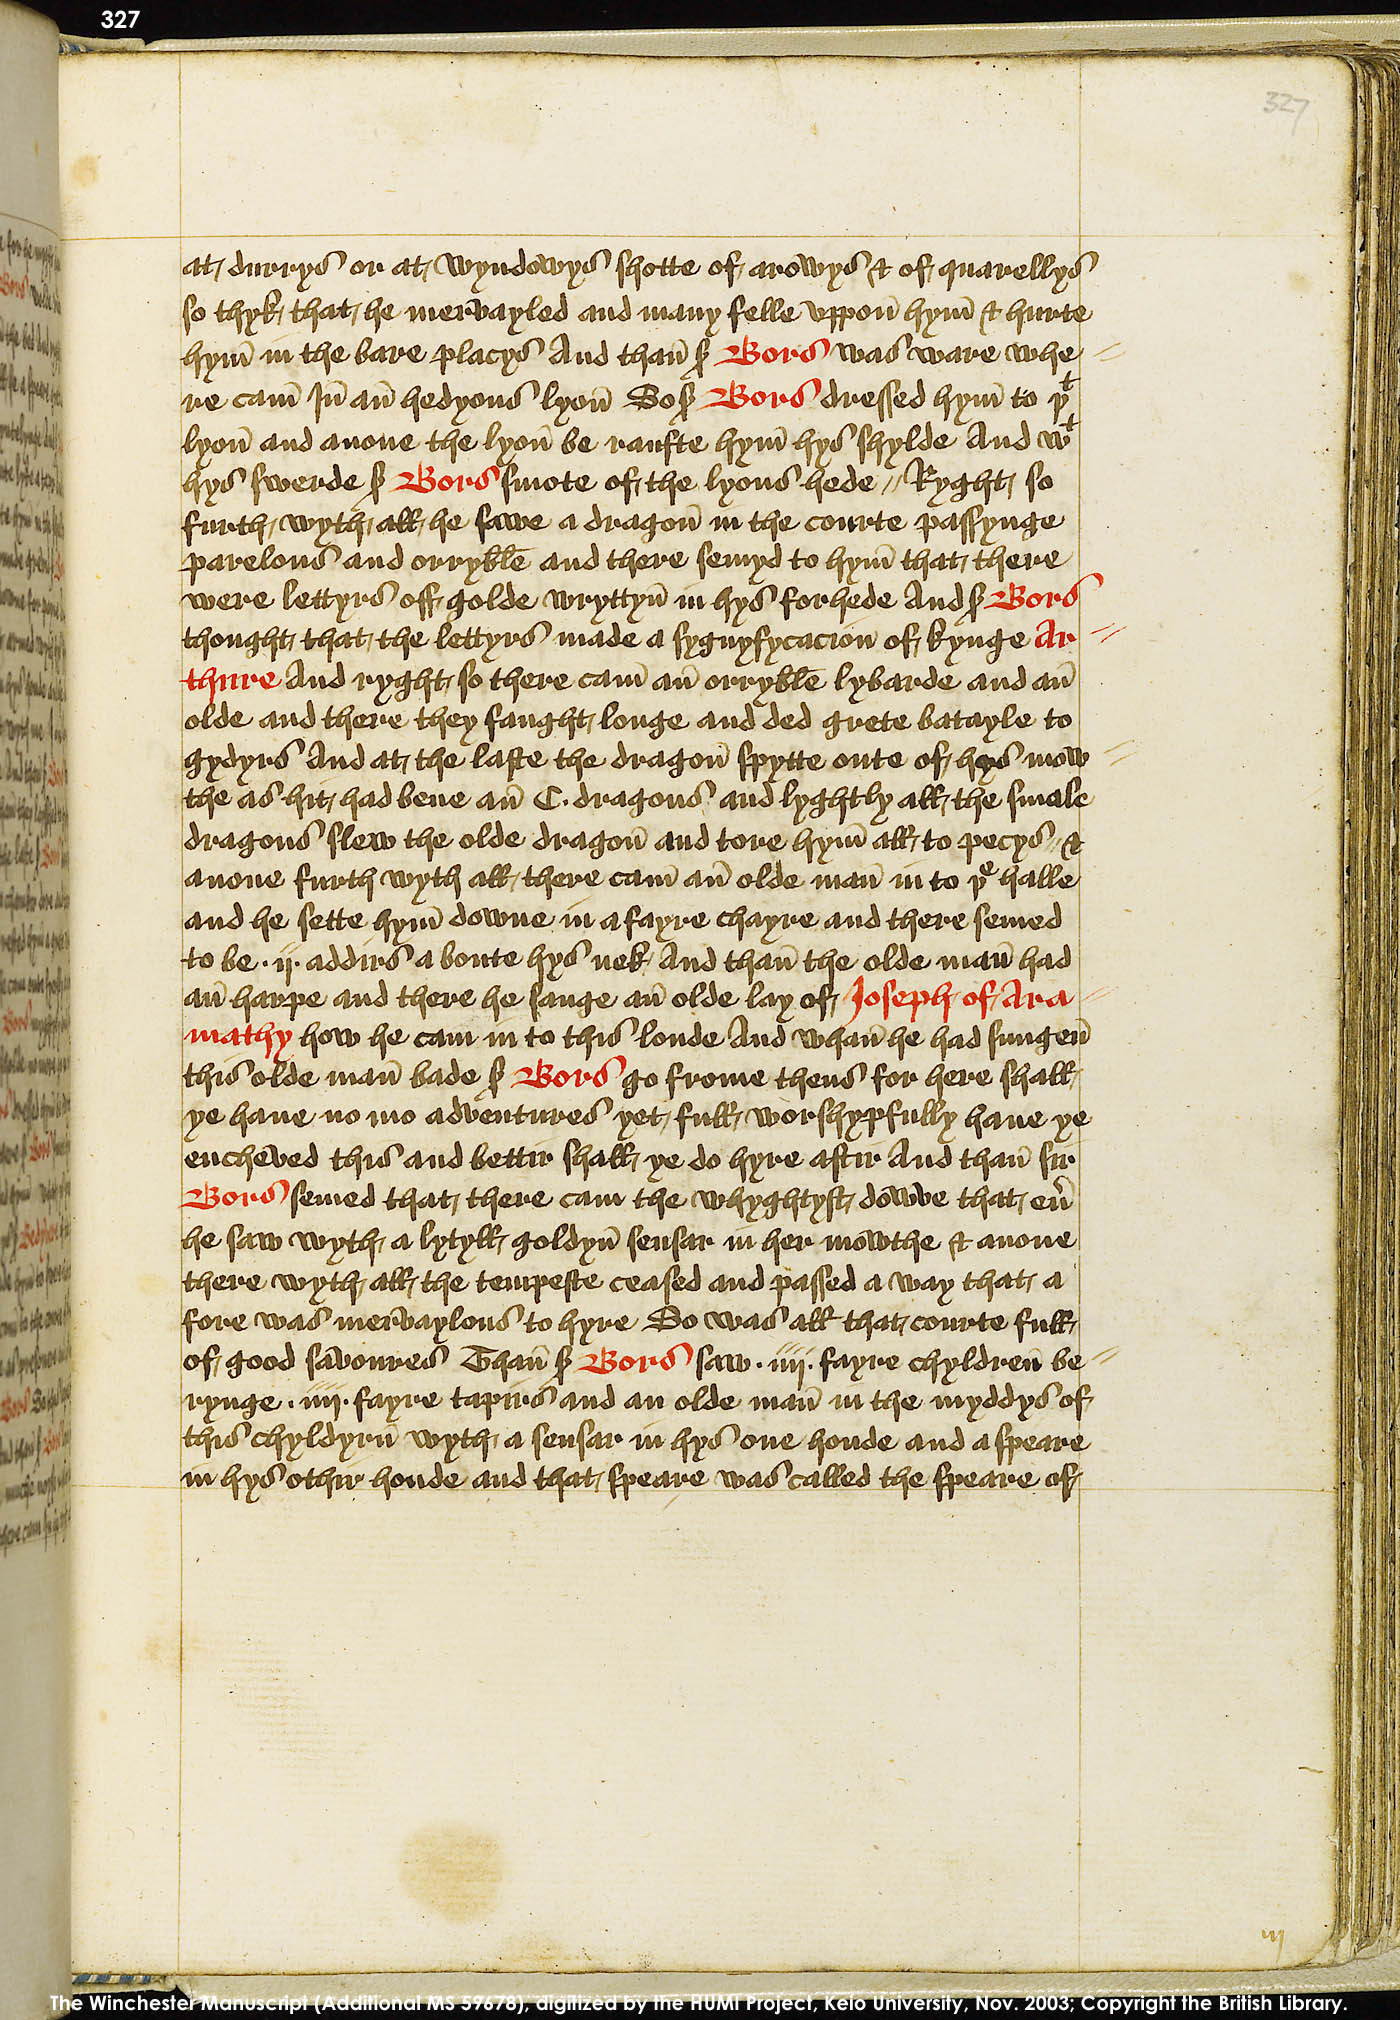 327
327
at durrys or at wyndowys shotte of arowys & of quarellys
so thyk that he mervayled and many felle vppon̄ hym̄ & hurte
hym̄ in the bare placys And than̄ sꝰ Bors was ware whe //
re cam̄ In̄ an̄ hedyous lyon̄ So sꝰ Bors dressed hym̄ to þᵗ
lyon̄ and anone the lyon̄ be raufte hym̄ hys shylde And wᵗ
hys swerde sꝰ Bors smote of the lyons hede // Ryght so
furth wyth all he sawe a dragon̄ in the courte passynge
parelous and orryble and there semyd to hym̄ that there
were lettyrs off golde wryttyn̄ in hys forhede And sꝰ Bors
thought that the lettyrs made a sygnyfycacion of kynge Ar //
thure And ryght so there cam̄ an̄ orryble lybarde and an̄
olde and there they faught longe and ded grete batayle to
gydyrs And at the laste the dragon̄ spytte oute of hys mow //
the as hit had bene an̄ C. dragons and lyghtly all the smale
dragons slew the olde dragon̄ and tore hym̄ all to pecys // &
anone furth wyth all there cam̄ an̄ olde man̄ in to þᵉ halle
and he sette hym̄ downe in a fayre chayre and there semed
to be .ij. addirs a boute hys nek And than̄ the olde man̄ had
an̄ harpe and there he sange an̄ olde lay of Joseph of Ara //
mathy how he cam in to this londe And whan̄ he had sungen̄
this olde man̄ bade sꝰ Bors go frome thens for here shall
ye haue no mo adventures yet full worshypfully haue ye
encheved this and bettir shall ye do hyre aftir And than̄ sir
Bors semed that there cam the whyghtyst dowve that eu̾
he saw wyth a lytyll goldyn̄ sensar in her mowthe & anone
there wyth all the tempeste ceased and passed a way that a
fore was mervaylous to hyre So was all that courte full
of good savoures Than̄ sꝰ Bors saw .iiij. fayre chyldren be //
rynge .iiij. fayre tapirs and an olde man̄ in the myddys of
this chyldyrn̄ wyth a sensar in hys one honde and a speare
in hys othir honde and that speare was called the speare of
iij
The Winchester Manuscript (Additional MS 59678), digitized by the HUMI Project, Keio University, Nov. 2003; Copyright the British Library.